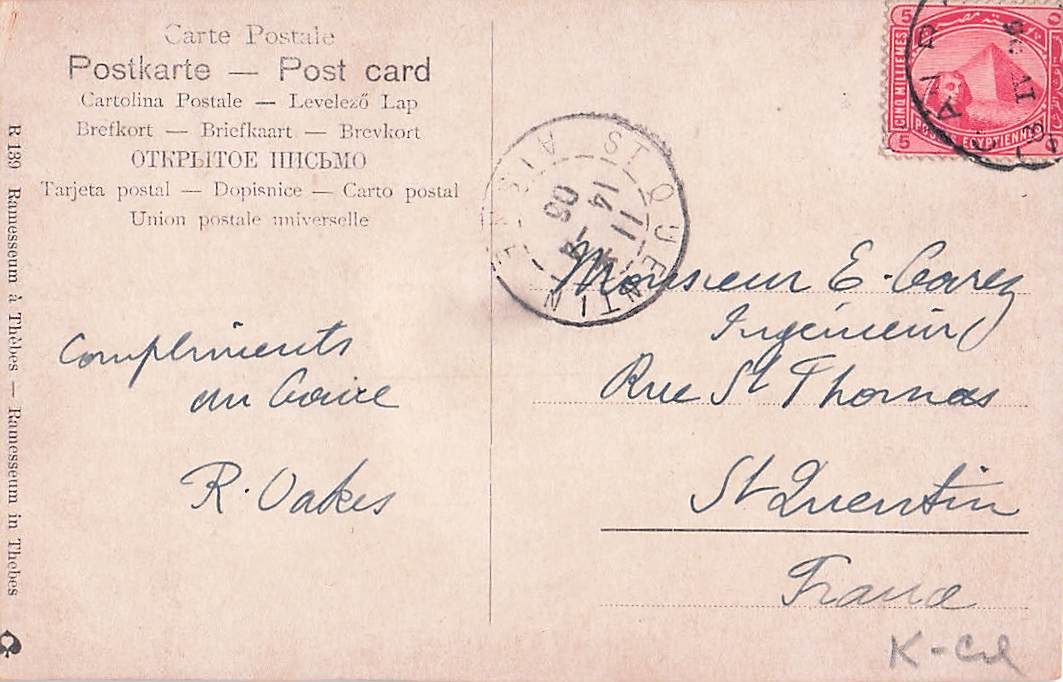 Carte Postale
Postkarte — Post card
Cartolina Postale — Levelező Lap
Brefkort — Briefkaart — Brevkort
ОТКРЫТОЕ ПИСЬМО
Tarjeta postal — Dopisnice — Carto postal
Union postale universelle
R 139 Ramesseum à Thèbes — Ramesseum in Thebes
Compliments
du Caire
R. Oakes
5 5
CINQ MILLIEMES
POSTES EGYPTIENNES
5
ST QUENTIN
AISNE
11
14 -4
06
Monsieur E. Carez
Ingénieur
Rue St Thomas
St Quentin
France
K-Col